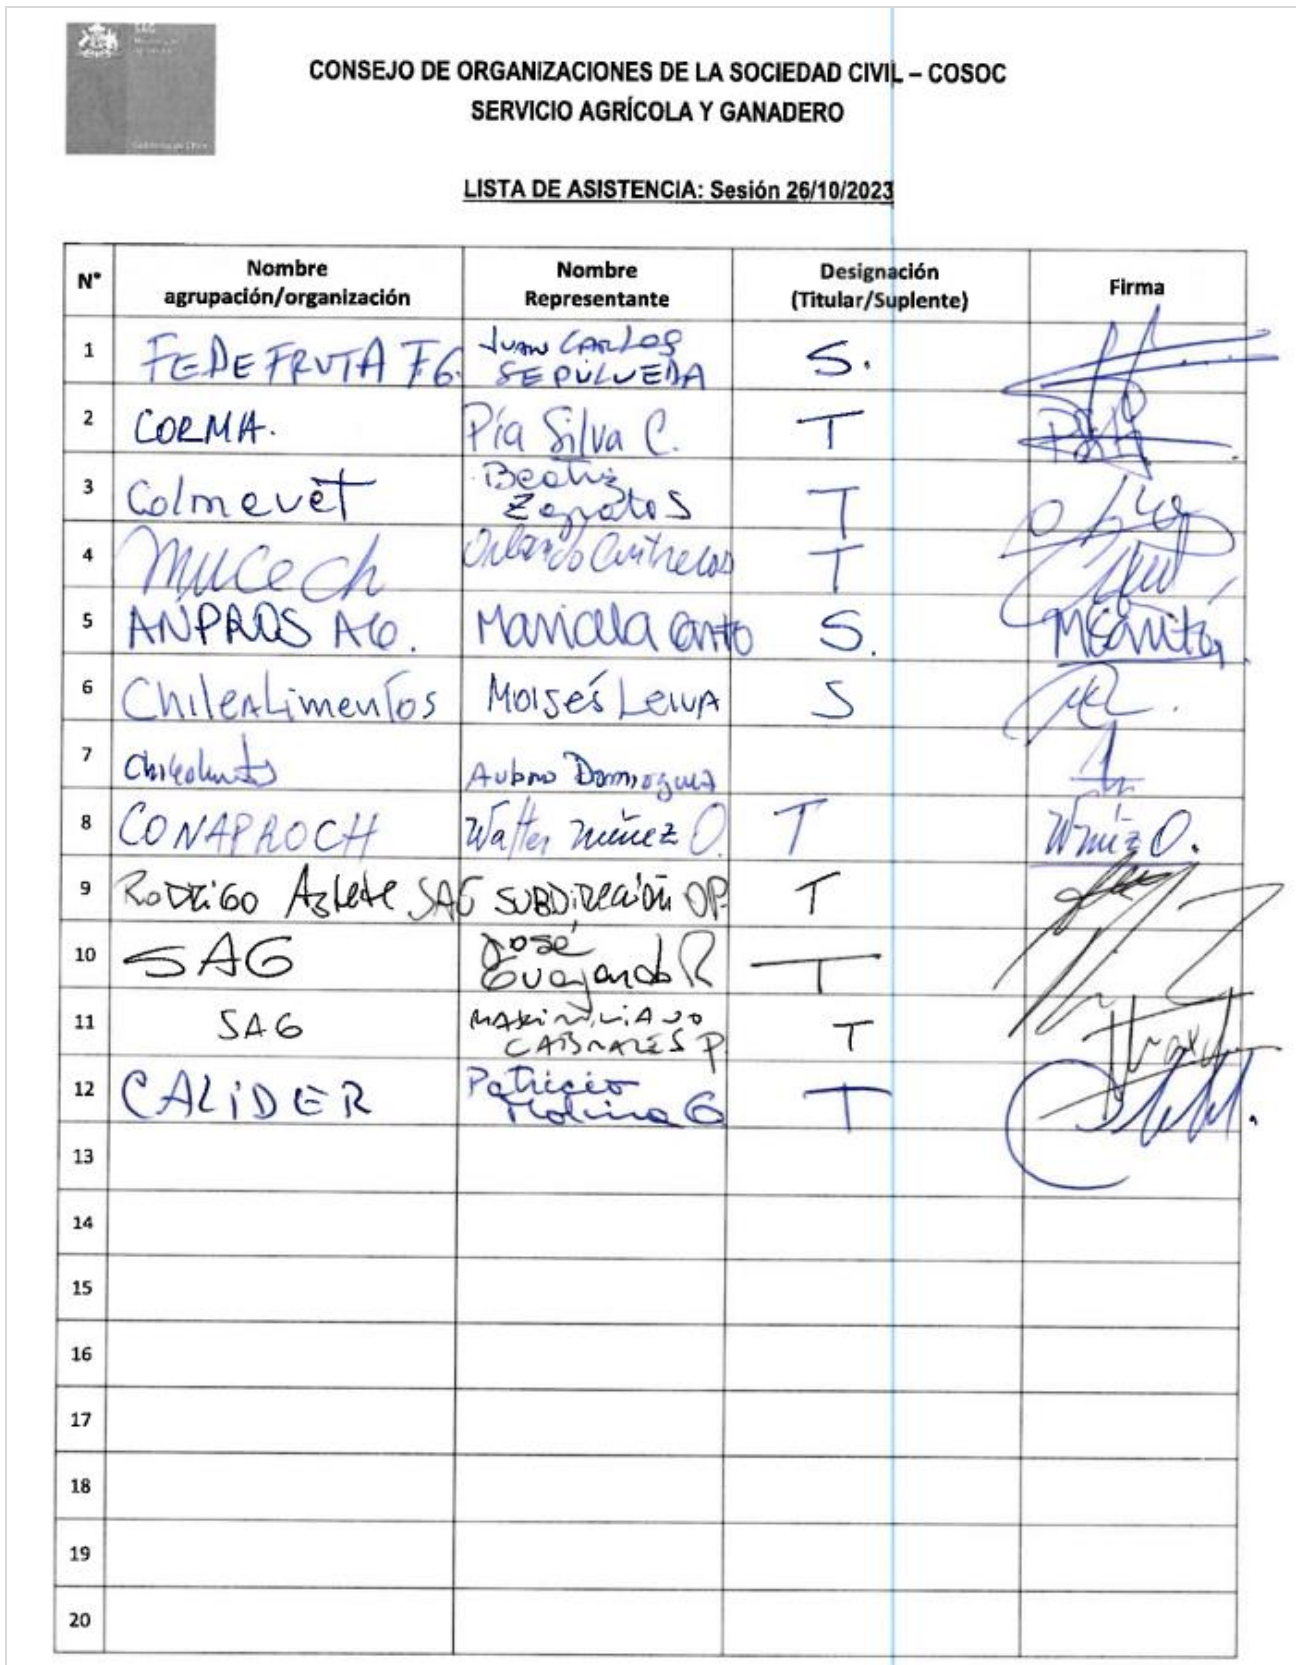 SAG
Gobierno de Chile
CONSEJO DE ORGANIZACIONES DE LA SOCIEDAD CIVIL – COSOC
SERVICIO AGRÍCOLA Y GANADERO
LISTA DE ASISTENCIA: Sesión 26/10/2023
N° Nombre agrupación/organización Nombre Representante Designación (Titular/Suplente) Firma
1 FEDEFRUTA F.G. JUAN CARLOS SEPÚLVEDA S.
2 CORMA. Pía Silva C. T
3 Colmevet Beatriz Zapata S T
4 Mucech Orlando Contreras T
5 ANPROS AG. Mariela S.
6 Chilealimentos Moisés Leiva S
7
8 CONAPROCH Walter Núñez O. T
9 Rodrigo Astete SAG SUBDIRECCIÓN OP. T
10 SAG José R T
11 SAG MAXIMILIANO P T
12 CALIDER Patricio Molina G T
13
14
15
16
17
18
19
20